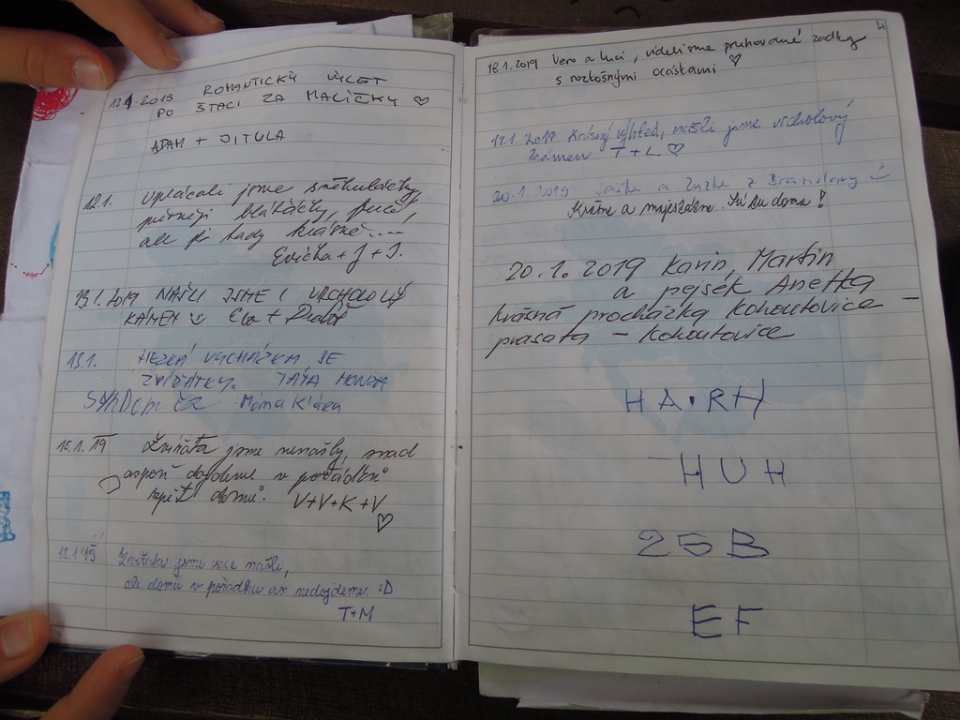 12.1.2019 ROMANTICKÝ VÝLET
PO ŠTACI ZA MALIČKY ♡
ADAM + JITULA
12.1. uplácali jsme sněhuláčky,
blátíčky,
ale je tady krásně.....
Evička + J + J.
13.1.2019 NAŠLI JSME I VRCHOLOVÝ
KÁMEN Ela +
13.1. HEZKÁ VYCHÁZKA SE
ZVÍŘÁTKY. TÁTA HONZA
Máma Klára
13.1. 19 Zvířata jsme nenašly, snad
aspoň dojdeme v pořádku
zpět domů. V+V+K+V
♡
13.1.19 Zvířata jsme sice našli,
ale domů v pořádku asi nedojdeme :D
T+M
18.1.2019 Vero a Luci, viděli jsme pruhované zadky
s rozkošnými ocáskami ♡
19.1.2019 Krásný výhled, našli jsme vrcholový
kámen T+L ♡
20.1.2019 a Zuzka z Bratislavy
Krásne a majestátne. Sú su doma!
20.1.2019 Karin, Martin
a pejsek Anetka
krásná procházka Kohoutovice –
prasata – Kohoutovice
HA•RH
HUH
25B
EF